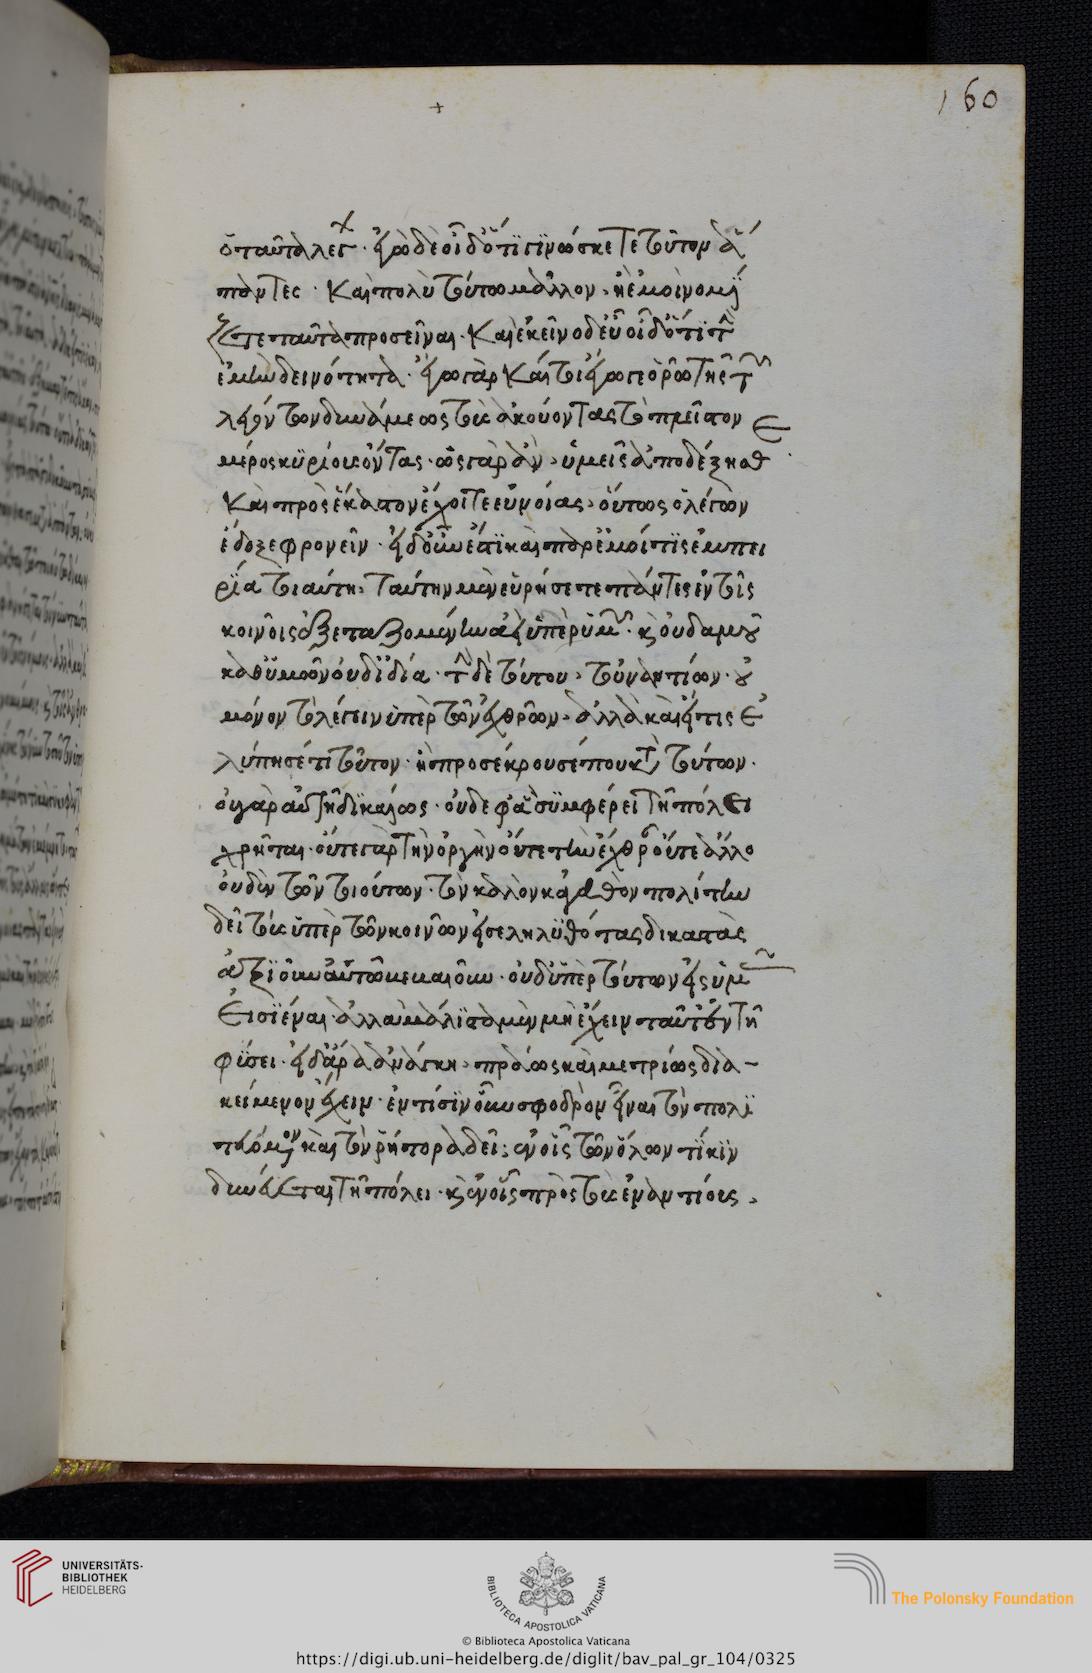 160
ὁ ταῦτα λέγ χ. ἐγὼ δὲ οἶδ' ὅτι γινώσκετε τοῦτον ἅ
παντες. καὶ πολὺ τούτω μᾶλλον ἢ ἐμοὶ νομί
ζετε ταῦτα προσεῖναι. κἀκεῖνο δ' εὖ οἶδ' ὅτι τ
ἐμὴν δεινότητα. ἔστω γάρ. καίτοι ἔγωγε ὁρῶ τῆς τ
λεγόντων δυνάμεως τοὺς ἀκούοντας τὸ πλεῖστον
μέρος κυρίους ὄντας. ὡς γὰρ ἂν ὑμεῖς ἀποδέξησθ
καὶ πρὸς ἕκαστον ἔχοιτε εὐνοίας, οὕτως ὁ λέγων
ἔδοξε φρονεῖν. εἰ δ' οὖν ἐστὶ καὶ παρ' ἐμοί τις ἐμπει
ρία τοιαύτη, ταύτην μὲν εὑρήσετε πάντες ἐν τοῖς
κοινοῖς ἐξεταζομένην ἀεὶ ὑπὲρ ὑμ. κ οὐδαμοῦ
καθ' ὑμῶν οὐδ' ἰδία. τ δὲ τούτου, τοὐναντίον. οὐ
μόνον τῶ λέγειν ὑπὲρ τῶν ἐχθρῶν, ἀλλὰ καὶ εἴ τις ἐ
λύπησέ τι τοῦτον. ἢ προσέκρουσέ που κτ τούτων.
οὐ γὰρ αὐτῆ δικαίως. οὐδ' ἐφ' ἃ συμφέρει τῆ πόλει
χρῆται. οὔτε γὰρ τὴν ὀργὴν οὔτε τὴν ἔχθραν οὔτε ἄλλο
οὐδὲν τῶν τοιούτων. τὸν καλὸν κἀγαθὸν πολίτην
δεῖ τοὺς ὑπὲρ τῶν κοινῶν εἰσεληλυθότας δικαστὰς
ἀξιοῦν αὐτῶ βεβαιοῦν. οὐδ' ὑπὲρ τούτων εἰς ὑμ
εἰσϊέναι. ἀλλὰ μάλιστα μὲν μὴ ἔχειν ταῦτ' ἐν τῆ
φύσει. εἰ δ' ἄρα ἀνάγκη, πράως καὶ μετρίως δια-
κείμενον ἔχειν. ἐν τίσιν οὖν σφοδρὸν εἶναι τὸν πολι
τευόμενον καὶ τὸν ῥήτορα δεῖ; ἐν οἷς τῶν ὅλων τι κιν
δυνεύεται τῆ πόλει. κ ἐν οἷς πρὸς τοὺς ἐναντίους.
UNIVERSITÄTS-
BIBLIOTHEK
HEIDELBERG
BIBLIOTECA APOSTOLICA VATICANA
The Polonsky Foundation
© Biblioteca Apostolica Vaticana
https://digi.ub.uni-heidelberg.de/diglit/bav_pal_gr_104/0325